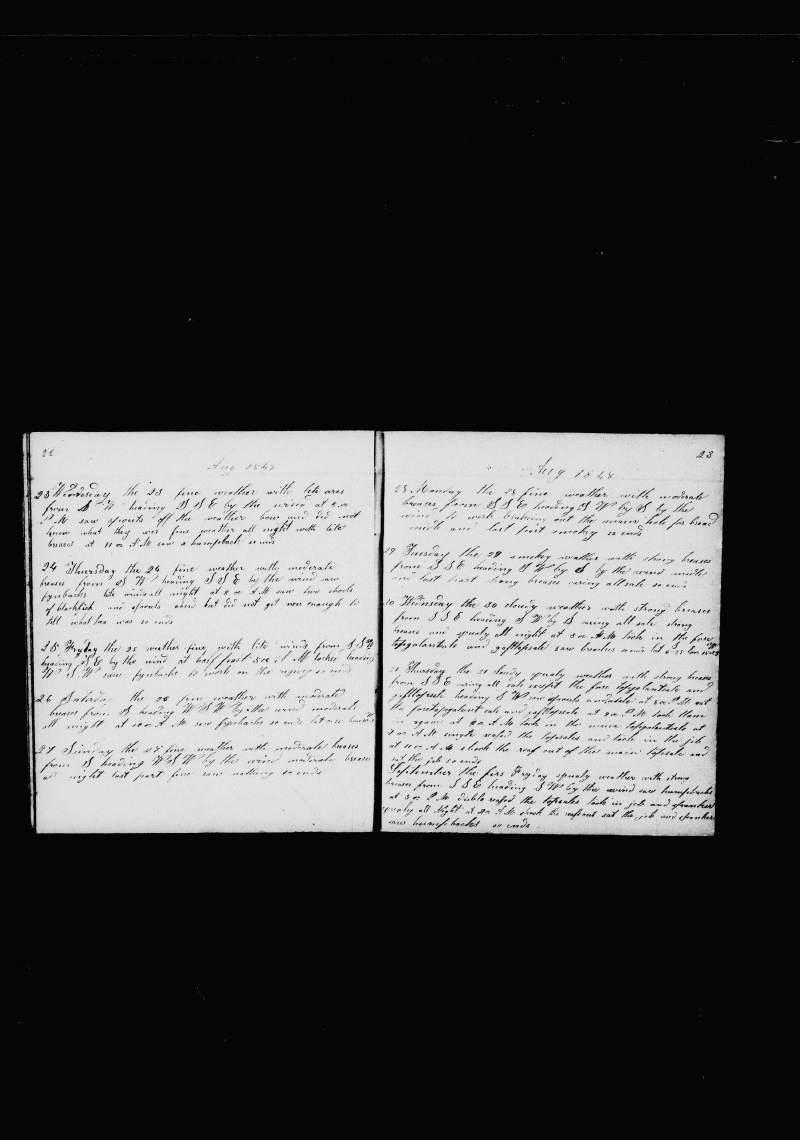 22
Aug 1848
23 Wednesday the 23 fine weather with lite ares
from S W heading S S E by the wind at 2 oc
P M saw spouts off the weather bow and did not
know what they wer fine weather all night with lite
breases at 11 oc A M saw a humpback so ends
24 Thursday the 24 fine weather with moderate
breases from S W heading S S E by the wind saw
fynbacks lite winds all night at 8 oc A M saw two shools
of blackfish and spouts ahead but did not get near enough to
tell what they was so ends
25 Fryday the 25 weather fine with lite winds from S S W
heading S E by the wind at half past 3 oc A M tacked heading
W S W saw fynbacks to work on the riging so ends
26 Saturday the 26 fine weather with moderate
breases from S heading W S W by the wind moderate
all night at 10 oc A M saw fynbacks so ends
27 Sunday the 27 fine weather with moderate breases
from S heading W S W by the wind moderate breases
all night last part fine saw nothing so ends
23
Aug 1848
28 Monday the 28 fine weather with moderate
breases from S S E heading S W by S by the
wind to work breaking out the main hole for bread
midle and last part smoky so ends
29 Tuesday the 29 smoky weather with strong breases
from S S E heading S W by S by the wind midle
and last part strong breases caring all sale so ends
30 Wednsday the 30 cloudy weather with strong breases
from S S E heading S W by S caring all sale strong
breases and squaly all night at 8 oc A M took in the fore
topgalantsale and gafttopsale saw breaches
31 Thursday the 31 cloudy squaly weather with strong breases
from S S E caring all sale except the fore topgalantsale and
gafttopsale heading S W saw spouts at 2 oc P M set
the foretopgalant sale and gafttopsale at 9 oc P M took them
in again at 2 oc A M took in the main topgalantsale at
4 oc A M single reefed the topsales and took in the jib
at 10 oc A M shook the reef out of the main topsale and
set the jib so ends
September the fers Fryday squaly weather with strong
breases from S S E heading S W by the wind saw humpbacks
at 3 oc P M duble reefed the topsales took in jib and spanker
squaly all night at 9 oc A M shook the reefs out set the jib and spanker
saw humpbacks so ends